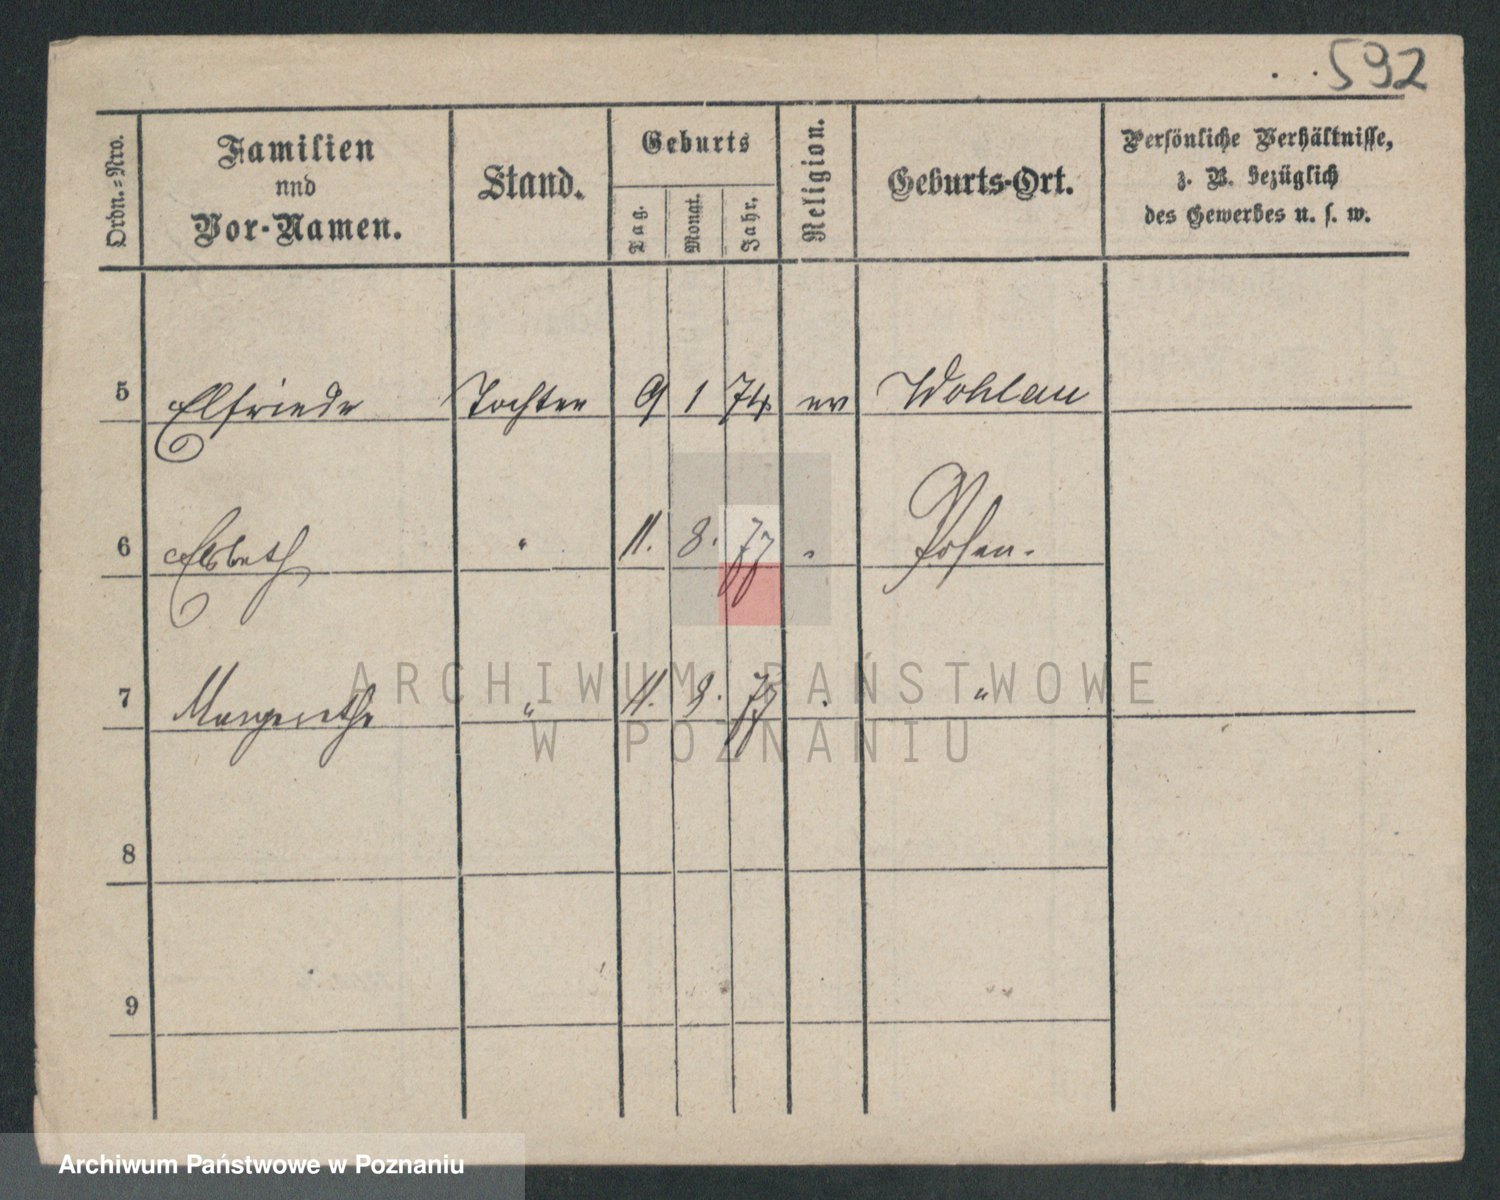 592
Ordn.-Nro. Familien nnd Vor-Namen. Stand. Geburts Tag. Monat. Jahr. Religion. Geburts-Ort. Persönliche Verhältnisse, z. B. bezüglich des Gewerbes u. s. w.
5 Elfriede Tochter 9 1 74 ev Wohlau
6 Elsbeth " 11. 8. 77 " Posen.
7 Margarethe " 11. 9. 77 " "
8
9
ARCHIWUM PAŃSTWOWE
W POZNANIU
Archiwum Państwowe w Poznaniu